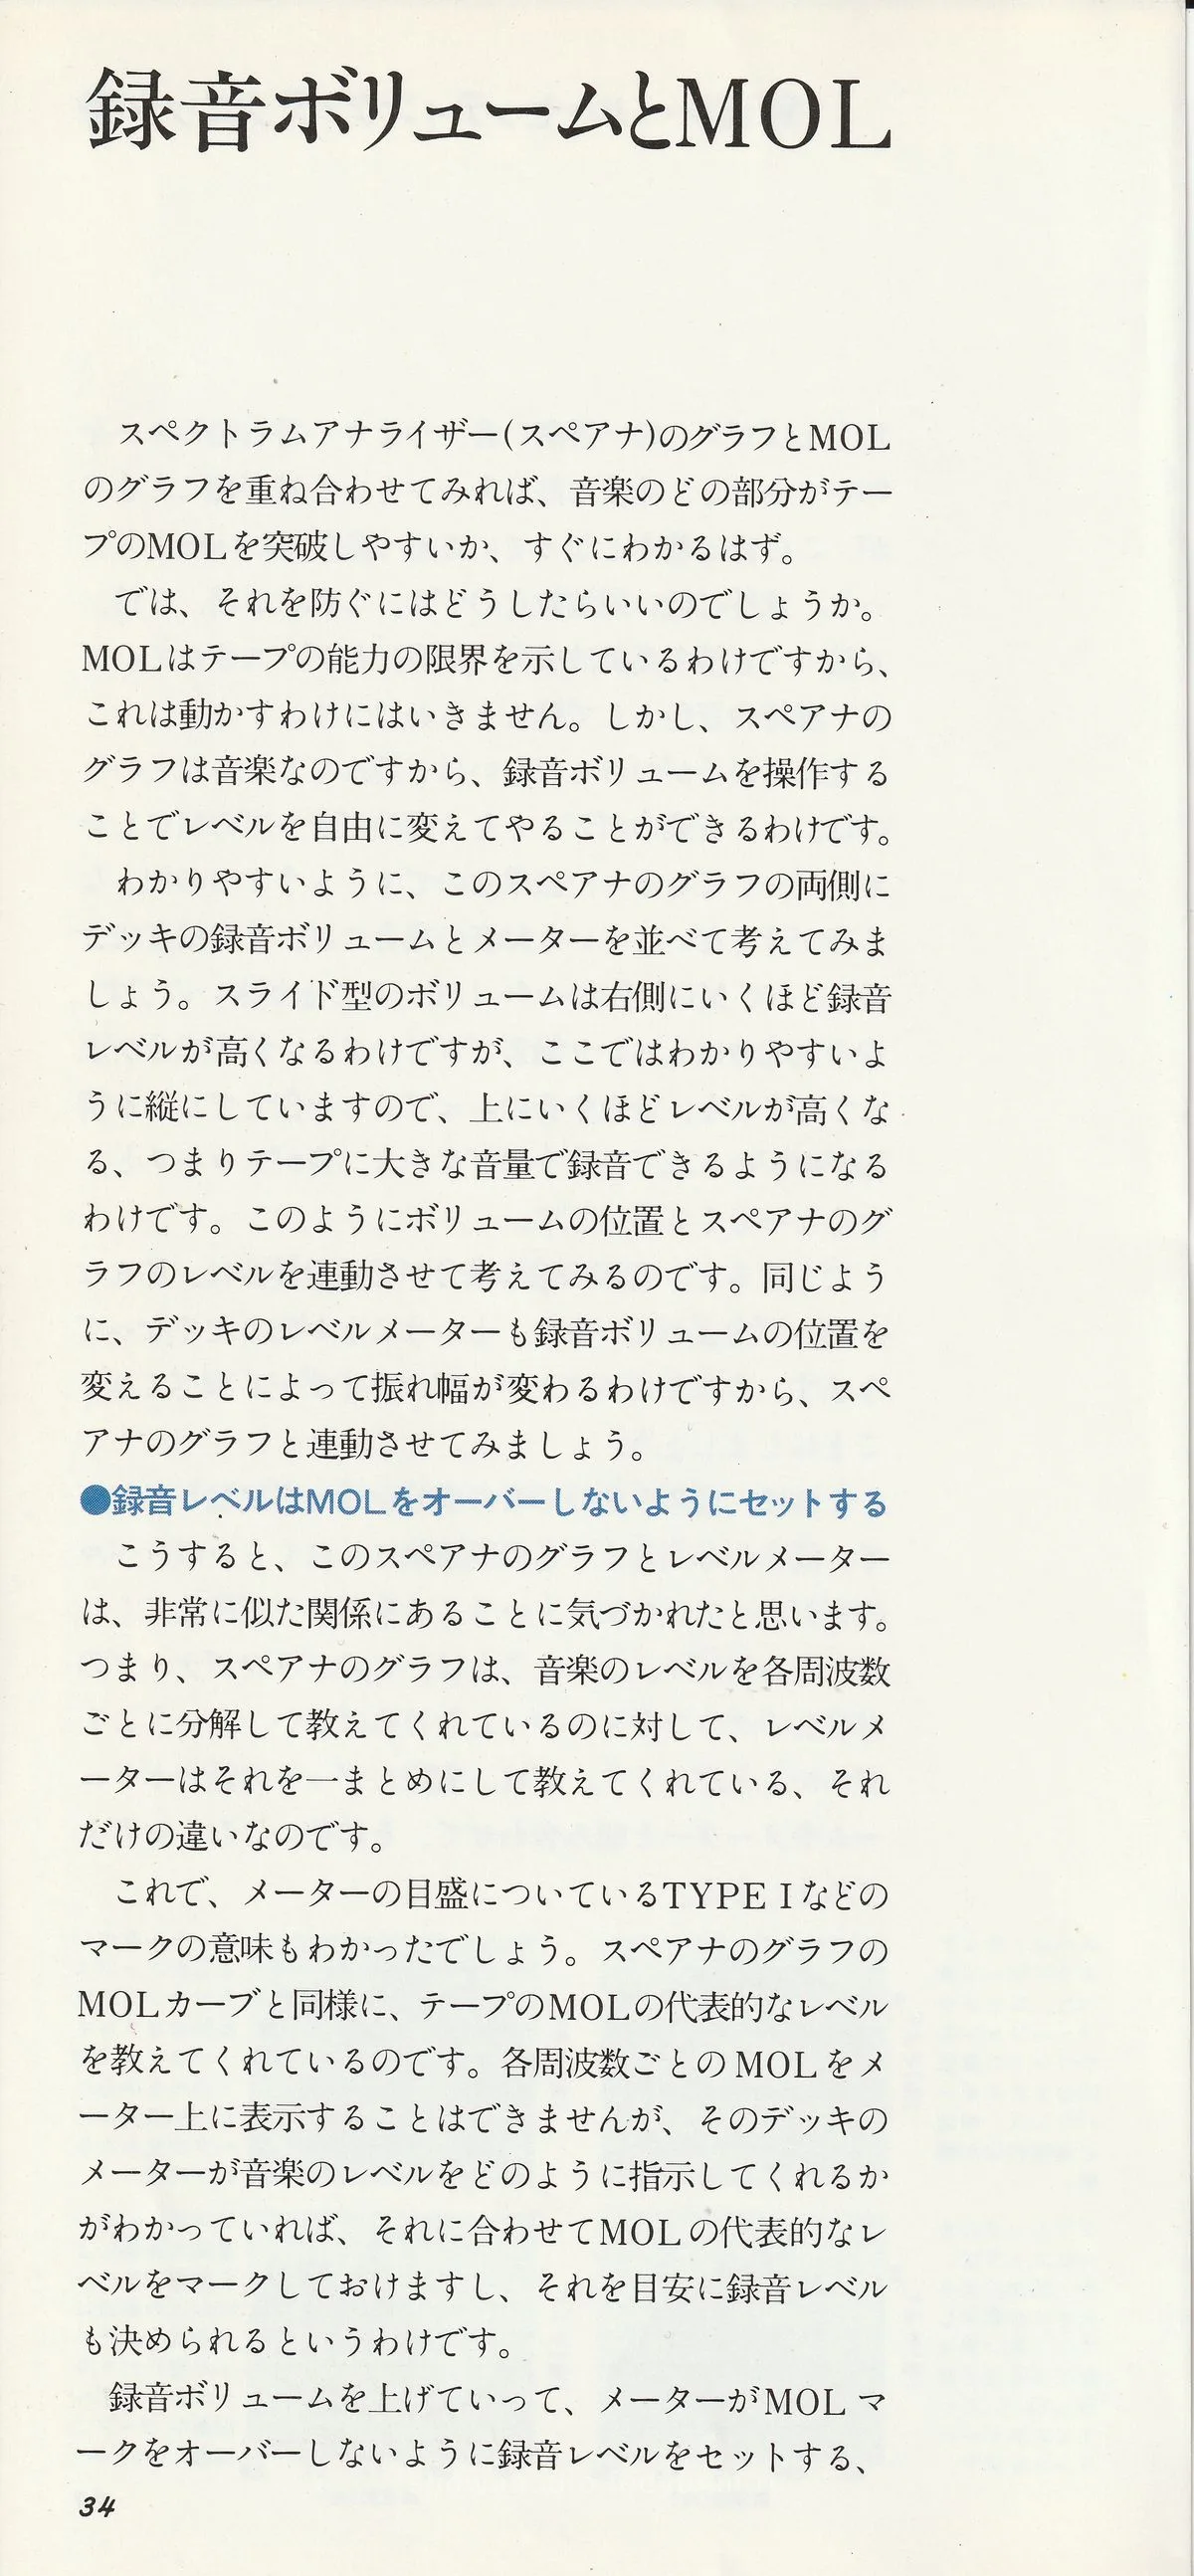 録音ボリュームとMOL
スペクトラムアナライザー(スペアナ)のグラフとMOL
のグラフを重ね合わせてみれば、音楽のどの部分がテー
プのMOLを突破しやすいか、すぐにわかるはず。
では、それを防ぐにはどうしたらいいのでしょうか。
MOLはテープの能力の限界を示しているわけですから、
これは動かすわけにはいきません。しかし、スペアナの
グラフは音楽なのですから、録音ボリュームを操作する
ことでレベルを自由に変えてやることができるわけです。
わかりやすいように、このスペアナのグラフの両側に
デッキの録音ボリュームとメーターを並べて考えてみま
しょう。スライド型のボリュームは右側にいくほど録音
レベルが高くなるわけですが、ここではわかりやすいよ
うに縦にしていますので、上にいくほどレベルが高くな
る、つまりテープに大きな音量で録音できるようになる
わけです。このようにボリュームの位置とスペアナのグ
ラフのレベルを連動させて考えてみるのです。同じよう
に、デッキのレベルメーターも録音ボリュームの位置を
変えることによって振れ幅が変わるわけですから、スペ
アナのグラフと連動させてみましょう。
●録音レベルはMOLをオーバーしないようにセットする
こうすると、このスペアナのグラフとレベルメーター
は、非常に似た関係にあることに気づかれたと思います。
つまり、スペアナのグラフは、音楽のレベルを各周波数
ごとに分解して教えてくれているのに対して、レベルメ
ーターはそれを一まとめにして教えてくれている、それ
だけの違いなのです。
これで、メーターの目盛についているTYPE Iなどの
マークの意味もわかったでしょう。スペアナのグラフの
MOLカーブと同様に、テープのMOLの代表的なレベル
を教えてくれているのです。各周波数ごとの MOLをメ
ーター上に表示することはできませんが、そのデッキの
メーターが音楽のレベルをどのように指示してくれるか
がわかっていれば、それに合わせてMOLの代表的なレ
ベルをマークしておけますし、それを目安に録音レベル
も決められるというわけです。
録音ボリュームを上げていって、メーターがMOL マ
ークをオーバーしないように録音レベルをセットする、
34